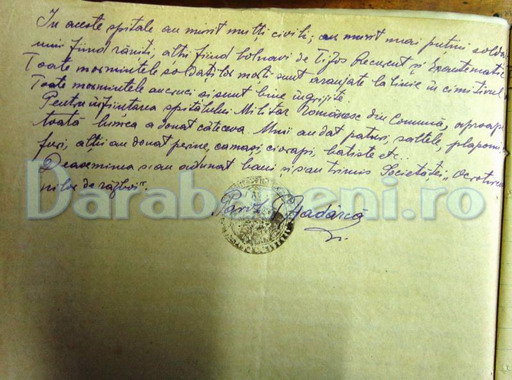 In aceste spitale au murit multi civili; au murit mai putini soldati
unii fiind răniti, altii fiind bolnavi de Tifos Recurent și Exantematic
Toate mormintele soldatilor morti sunt aranjate la linie in cimitirul
Toate mormintele au cruci si sunt bine ingrijite.
Pentru infiintarea spitalului Militar Românesc din Comună, aproape
toată lumea a donat câteceva. Unii au dat paturi, saltele, plapome
altii au donat perine, camasi, ciorapi, batiste etc.
Deasemenea s'au adunat bani si s'au trimis Societătei "Ocrotirea
orfanilor de războiu".
Darabaneni.ro
Preot